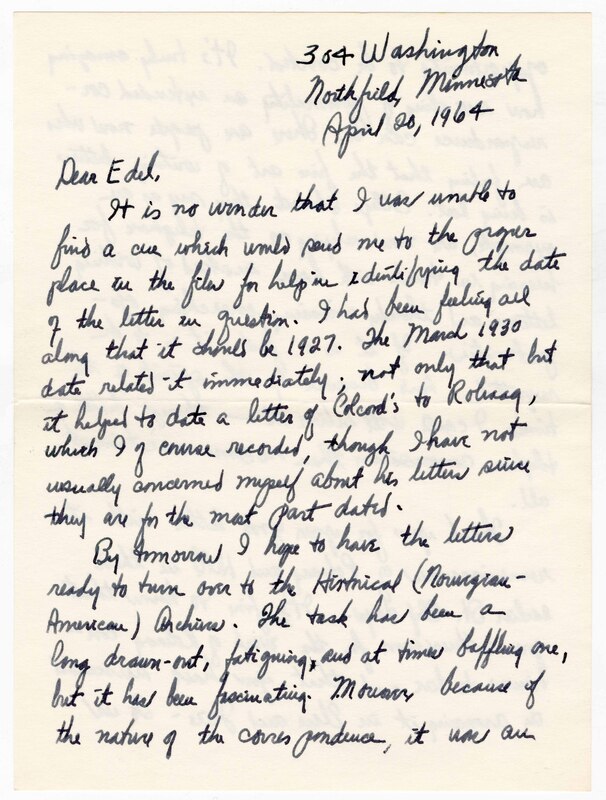 304 Washington
Northfield, Minnesota
April 20, 1964
Dear Edel,
It is no wonder that I was unable to
find a cue which would send me to the proper
place in the files for help in identifying the date
of the letter in question. I had been feeling all
along that it should be 1927. The March 1930
date related it immediately; not only that but
it helped to date a letter of Colcord's to Rolvaag,
which I of course recorded, though I have not
usually concerned myself about his letters since
they are for the most part dated.
By tomorrow I hope to have the letters
ready to turn over to the Historical (Norwegian-
American) Archives. The task has been a
long drawn-out, fatiguing, and at times baffling one,
but it has been fascinating. Moreover because of
the nature of the correspondence, it was an